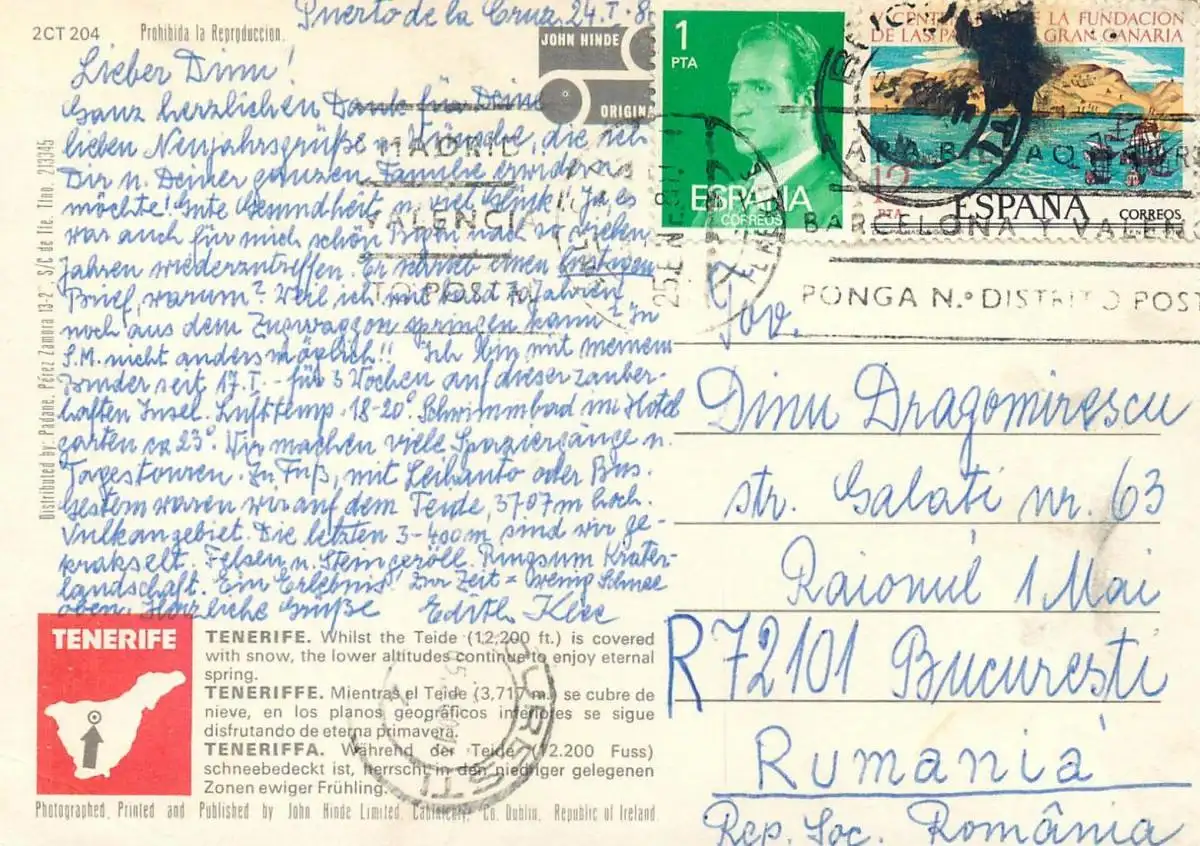 Puerto de la Cruz 24.I.8
2CT 204
Prohibida la Reproduccion.
JOHN HINDE
ORIGINA
Lieber Dinu!
Ganz herzlichen Dank für Deine
lieben Neujahrsgrüße u. Wünsche, die ich
Dir u. Deiner ganzen Familie erwidern
möchte! Gute Gesundheit u. viel Glück! Ja es
war auch für mich schön nach so vielen
Jahren wiederzutreffen. Er schrieb einen lustigen
Brief, warum? Weil ich mit bald 70 Jahren
noch aus dem Zugwaggon springen kann? In
S.M. nicht anders möglich!! Ich bin mit meinem
Bruder seit 17.I. - für 3 Wochen auf dieser zauber-
haften Insel. Lufttemp. 18-20° Schwimmbad im Hotel
garten ca 23°. Wir machen viele Spaziergänge u.
Tagestouren. Zu Fuß, mit Leihauto oder Bus.
Gestern waren wir auf dem Teide, 3707m hoch.
Vulkangebiet. Die letzten 3-400m sind wir ge-
krakselt. Felsen u. Steingeröll. Ringsum Krater-
landschaft. Ein Erlebnis! Zur Zeit = wenig Schnee
oben. Herzliche Grüße Edith Klee
Distributed by: Padane. Pérez Zamora 13-2°. S/C de Tfe. Tfno. 213345
1
PTA
ESPAÑA
CORREOS
CENTENARIO DE LA FUNDACION
DE LAS PALMAS GRAN CANARIA
12
PTA
ESPAÑA
CORREOS
MADRID
VALENCIA
TO POSTAL
25 ENE
PARA BILBAO
BARCELONA Y VALENC
PONGA N.º DISTRITO POST
Tov.
Dinu Dragomirescu
str. Galati nr. 63
Raionul 1 Mai
R 72101 Bucureşti
Rumania
Rep. Soc. România
TENERIFE
TENERIFE. Whilst the Teide (12,200 ft.) is covered
with snow, the lower altitudes continue to enjoy eternal
spring.
TENERIFFE. Mientras el Teide (3,717 m.) se cubre de
nieve, en los planos geográficos inferiores se sigue
disfrutando de eterna primavera.
TENERIFFA. Während der Teide (12.200 Fuss)
schneebedeckt ist, herrscht in den niedriger gelegenen
Zonen ewiger Frühling.
Photographed, Printed and Published by John Hinde Limited, Cabinteely, Co. Dublin, Republic of Ireland.